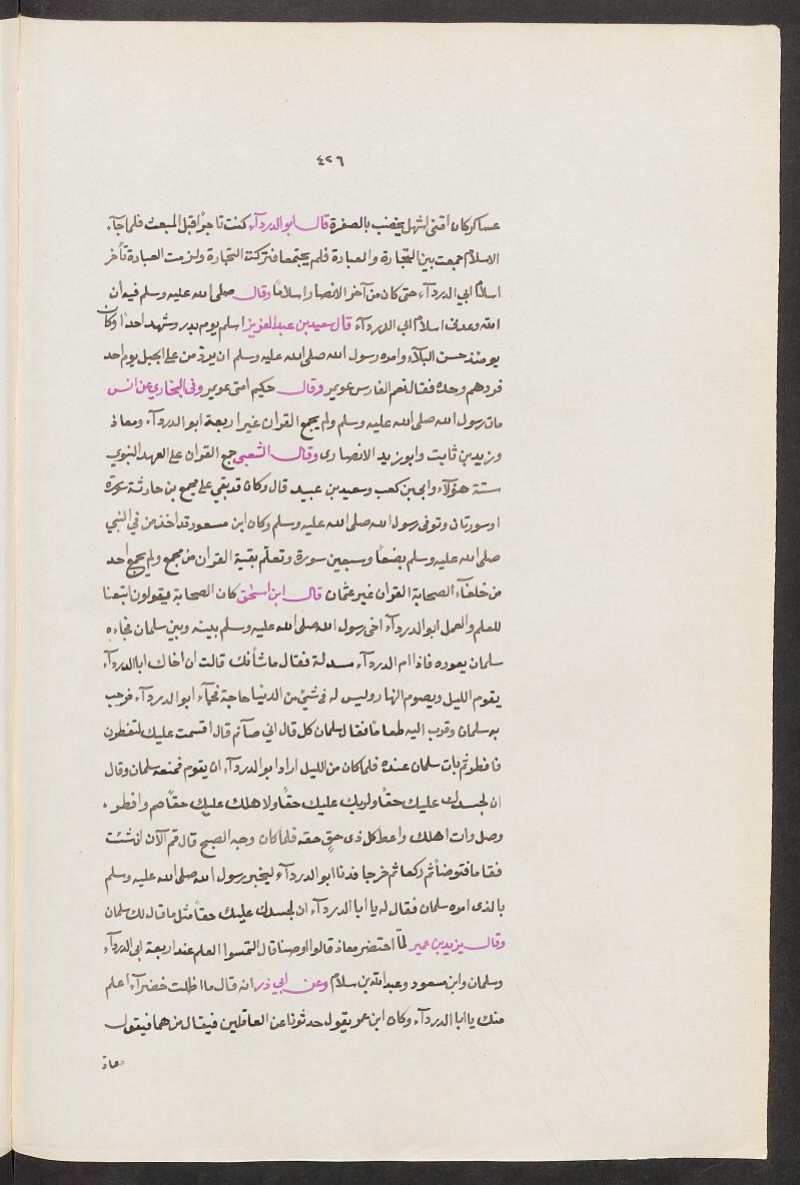 ٤٢٦
عساكر كان اقنى اشهل يخضب بالصفرة قال ابو الدردآء كنت تاجرًا قبل المبعث فلما جآء
الاسلام جمعت بين التجارة والعبادة فلم يجتمعا فتركت التجارة ولزمت العبادة تأخر
اسلام ابي الدردآء حتى كان من آخر الانصار اسلامًا وقال صلى الله عليه وسلم فيه ان
الله وعدنى اسلام ابى الدردآء قال سعيد بن عبد العزيز اسلم يوم بدر وشهد احدًا وكان
يومئذ حسن البلآء وامره رسول الله صلى الله عليه وسلم ان يردّ من على الجبل يوم احد
فردهم وحده فقال نعم الفارس عويمر وقال حكيم امتى عويمر وفى البخاري عن انس
مات رسول الله صلى الله عليه وسلم ولم يجمع القران غير اربعة ابو الدردآء ومعاذ
وزيد بن ثابت وابو زيد الانصارى وقال الشعبى جمع القران على العهد النبوي
ستة هؤلآء وابى بن كعب وسعيد بن عبيد قال وكان قد بقي على مجمع بن حارثة سورة
او سورتان وتوفى رسول الله صلى الله عليه وسلم وكان ابن مسعود قد اخذ من في النبي
صلى الله عليه وسلم بضعًا وسبعين سورة وتعلّم بقية القران من مجمع ولم يجمع احد
من خلفآء الصحابة القران غير عثمان قال ابن اسحق كان الصحابة يقولون اتبعنا
للعلم والعمل ابو الدردآء اخى رسول الله صلى الله عليه وسلم بينه وبين سلمان فجاءه
سلمان يعوده فاذا ام الدردآء مبتذلة فقال ما شأنك قالت ان اخاك ابا الدردآء
يقوم الليل ويصوم النهار وليس له في شيئ من الدنيا حاجة فجآء ابو الدردآء فرحب
به سلمان وقرب اليه طعامًا فقال سلمان كل قال اني صآئم قال اقسمت عليك لتفطرن
فافطر ثم بات سلمان عنده فلما كان من الليل اراد ابو الدردآء ان يقوم فمنعه سلمان وقال
ان لجسدك عليك حقًا ولربك عليك حقًا ولاهلك عليك حقًا صم وافطر
وصل وات اهلك واعط كل ذى حقٍ حقه فلما كان وجه الصبح قال قم الآن ان شئت
فقاما فتوضأ ثم ركعا ثم خرجا فدنا ابو الدردآء ليخبر رسول الله صلى الله عليه وسلم
بالذى امره سلمان فقال له يا ابا الدردآء ان لجسدك عليك حقًا مثل ما قال لك سلمان
وقال يزيد بن عمير لمّا احتضر معاذ قالوا اوصنا قال التمسوا العلم عند اربعة ابى الدردآء
وسلمان وابن مسعود وعبد الله بن سلام وعن ابي ذر انه قال ما اظلت خضرآء اعلم
منك يا ابا الدردآء وكان ابن عمر يقول حدثونا عن العاقلين فيقال من هما فيقول
معاذ